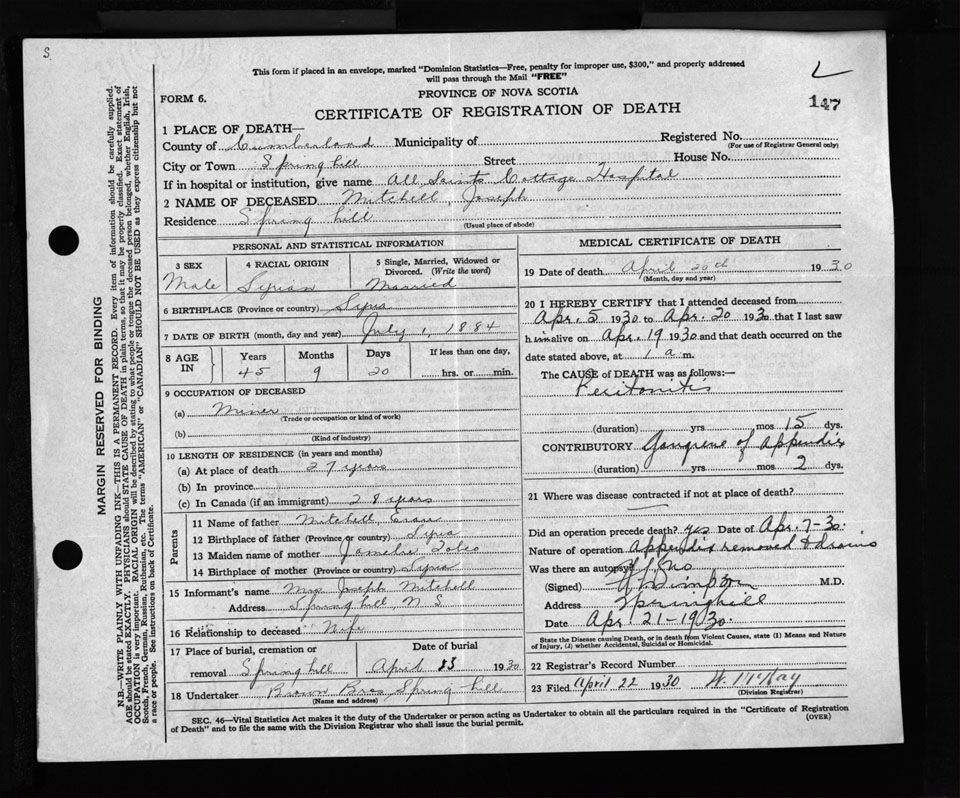 S
This form if placed in an envelope, marked "Dominion Statistics—Free, penalty for improper use, $300," and properly addressed
will pass through the Mail "FREE"
L
147
FORM 6.
PROVINCE OF NOVA SCOTIA
CERTIFICATE OF REGISTRATION OF DEATH
1 PLACE OF DEATH—
County of Cumberland Municipality of Registered No.
(For use of Registrar General only)
City or Town Springhill Street House No.
If in hospital or institution, give name All Saints Cottage Hospital
2 NAME OF DECEASED Mitchell, Joseph
Residence Spring hill
(Usual place of abode)
PERSONAL AND STATISTICAL INFORMATION
3 SEX Male
4 RACIAL ORIGIN Syrian
5 Single, Married, Widowed or Divorced. (Write the word) Married
6 BIRTHPLACE (Province or country) Syria
7 DATE OF BIRTH (month, day and year) July 1, 1884
8 AGE IN Years 45 Months 9 Days 20 If less than one day, hrs. or min.
9 OCCUPATION OF DECEASED
(a) Miner
(Trade or occupation or kind of work)
(b)
(Kind of industry)
10 LENGTH OF RESIDENCE (in years and months)
(a) At place of death 27 years
(b) In province
(c) In Canada (if an immigrant) 28 years
Parents
11 Name of father Mitchell
12 Birthplace of father (Province or country) Syria
13 Maiden name of mother
14 Birthplace of mother (Province or country) Syria
15 Informant's name Mrs Joseph Mitchell
Address Spring hill, N S
16 Relationship to deceased Wife
17 Place of burial, cremation or removal Spring hill
Date of burial April 1930
18 Undertaker Brown Bros Spring hill
(Name and address)
MEDICAL CERTIFICATE OF DEATH
19 Date of death April 20th 1930
(Month, day and year)
20 I HEREBY CERTIFY that I attended deceased from
Apr. 5 1930 to Apr. 20 1930 that I last saw
him alive on Apr. 19 1930 and that death occurred on the
date stated above, at 1 a.m.
The CAUSE of DEATH was as follows:—
Peritonitis
(duration) yrs mos 15 dys.
CONTRIBUTORY Gangrene of Appendix
(duration) yrs mos 2 dys.
21 Where was disease contracted if not at place of death?
Did an operation precede death? yes Date of Apr. 7-30
Nature of operation Appendix removed & drains
Was there an autopsy? No
(Signed) M.D.
Address Springhill
Date Apr 21-1930
State the Disease causing Death, or in death from Violent Causes, state (1) Means and Nature
of Injury, (2) whether Accidental, Suicidal or Homicidal.
22 Registrar's Record Number
23 Filed April 22 1930
(Division Registrar)
SEC. 46—Vital Statistics Act makes it the duty of the Undertaker or person acting as Undertaker to obtain all the particulars required in the "Certificate of Registration
of Death" and to file the same with the Division Registrar who shall issue the burial permit.
(OVER)
MARGIN RESERVED FOR BINDING
N.B.—WRITE PLAINLY WITH UNFADING INK—THIS IS A PERMANENT RECORD. Every item of information should be carefully supplied.
AGE should be stated EXACTLY. PHYSICIANS should STATE CAUSE OF DEATH in plain terms, so that it may be properly classified. Exact statement of
OCCUPATION is very important. RACIAL ORIGIN will be described by stating to what people or tongue the deceased person belonged, whether English, Irish,
Scotch, French, German, Russian, Ruthenian, etc. The terms "AMERICAN" or "CANADIAN" SHOULD NOT BE USED as they express citizenship but not
a race or people. See instructions on back of Certificate.